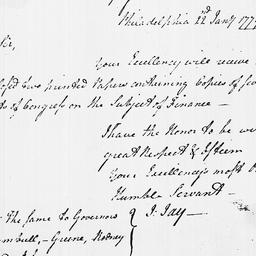 Philadelphia 22nd Jany 177
Sir,
Your Excellency will receive
closed two printed Papers containing Copies of
ts of Congress on the Subject of Finance —
I have the Honor to be
great Respect & Esteem
Your Excellency's most
Humble Servant —
The same to Governors } J. Jay —
mbull, — Greene, Rodney